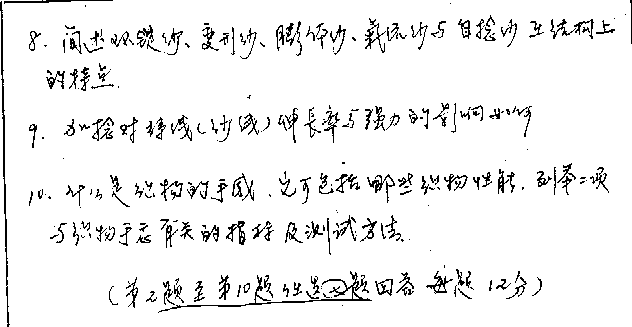 8. 简述环锭纱、变形纱、膨体纱、气流纱与自捻纱在结构上
的特点.
9. 加捻对捻线(纱线)伸长率与强力的影响如何
10. 什么是织物的手感、它可包括哪些织物性能、列举二项
与织物手感有关的指标及测试方法.
(第2题至第10题任选 题回答 每题12分)